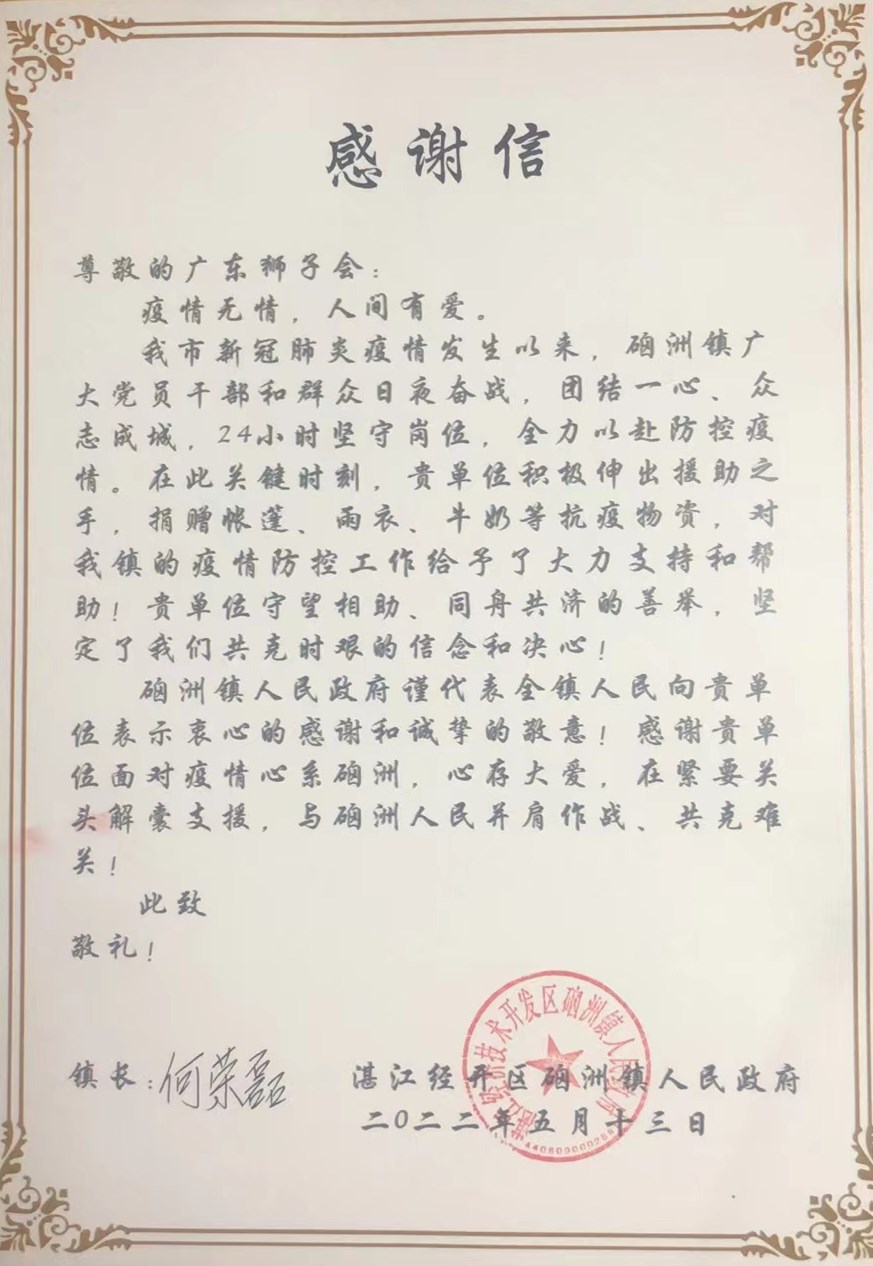 感谢信
尊敬的广东狮子会：
疫情无情，人间有爱。
我市新冠肺炎疫情发生以来，硇洲镇广
大党员干部和群众日夜奋战，团结一心、众
志成城，24小时坚守岗位，全力以赴防控疫
情。在此关键时刻，贵单位积极伸出援助之
手，捐赠帐篷、雨衣、牛奶等抗疫物资，对
我镇的疫情防控工作给予了大力支持和帮
助！贵单位守望相助、同舟共济的善举，坚
定了我们共克时艰的信念和决心！
硇洲镇人民政府谨代表全镇人民向贵单
位表示衷心的感谢和诚挚的敬意！感谢贵单
位面对疫情心系硇洲，心存大爱，在紧要关
头解囊支援，与硇洲人民并肩作战、共克难
关！
此致
敬礼！
镇长：何荣磊
湛江经开区硇洲镇人民政府
二0二二年五月十三日
湛江经济技术开发区硇洲镇人民政府